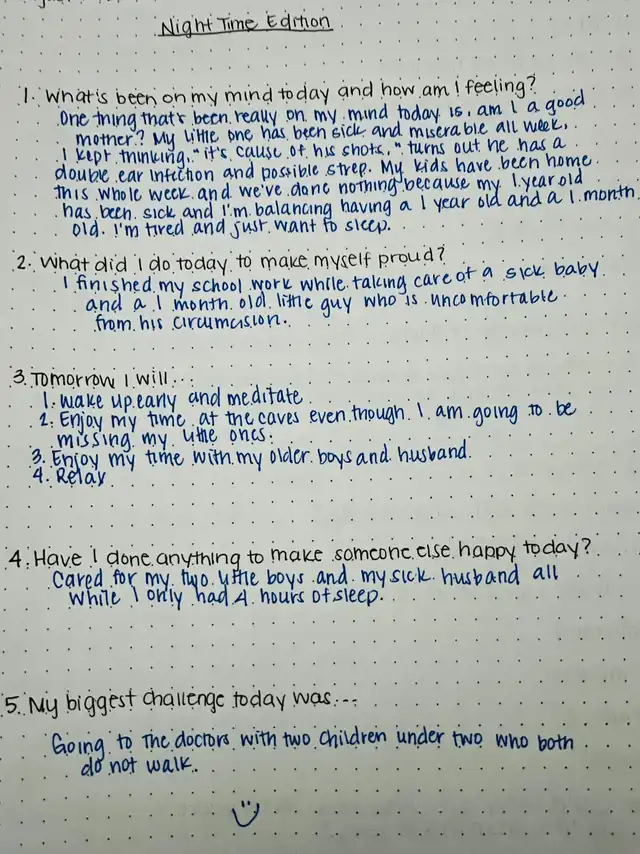 Night Time Edition
1. What's been on my mind today and how am I feeling?
One thing that's been really on my mind today is, am I a good
mother? My little one has been sick and miserable all week,
I kept thinking, "it's cause of his shots," turns out he has a
double ear infection and possible strep. My kids have been home
this whole week and we've done nothing because my 1 year old
has been sick and I'm balancing having a 1 year old and a 1 month
old. I'm tired and just want to sleep.
2. What did I do today to make myself proud?
I finished my school work while taking care of a sick baby
and a 1 month old little guy who is uncomfortable
from his circumcision.
3. Tomorrow I will...
1. Wake up early and meditate
2. Enjoy my time at the caves even though I am going to be
missing my little ones.
3. Enjoy my time with my older boys and husband.
4. Relax
4. Have I done anything to make someone else happy today?
Cared for my two little boys and my sick husband all
while I only had 4 hours of sleep.
5. My biggest challenge today was...
Going to the doctors with two children under two who both
do not walk.